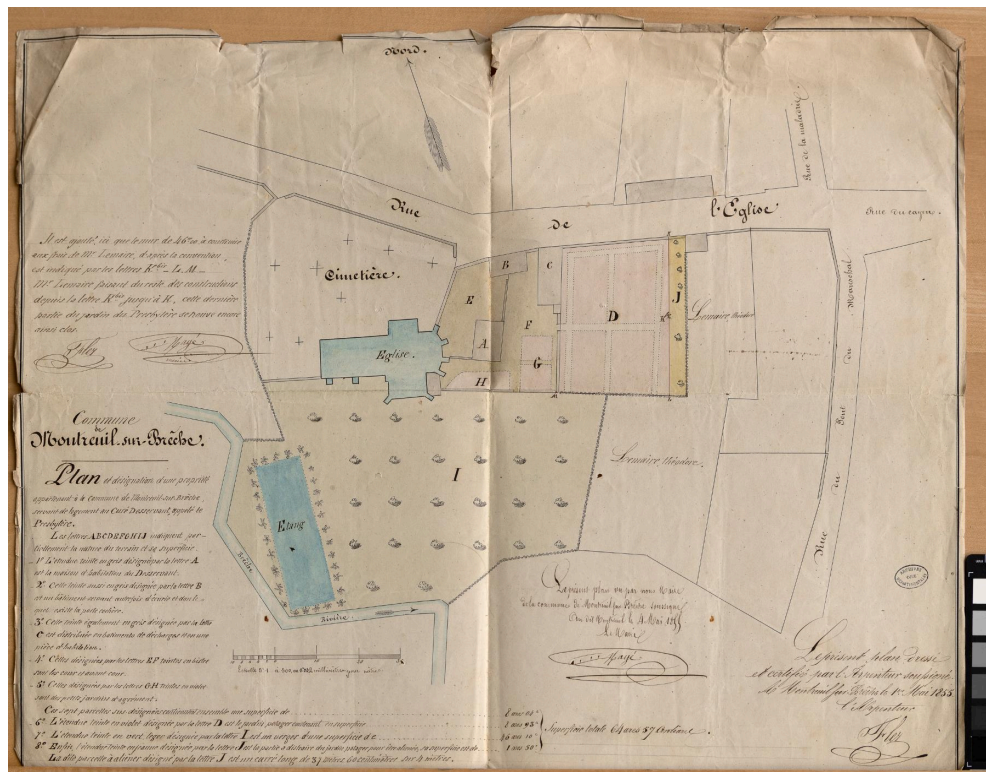 Nord.
Rue
de
l'Eglise
Rue de la maladrie
Rue du cagna.
Il est ajouté, ici que le mur de 46m 00 à construire
aux frais de Mr. Lemaire, d'après la convention
est indiqué par les lettres K bis - L. M.
Mr. Lemaire faisant du reste des constructions
depuis la lettre K bis jusqu'à K, cette dernière
partie du jardin du Presbytère se trouve encore
ainsi clos.
Cimetière.
Eglise.
A
B
C
D
E
F
G
H
I
J
Lemaire Théodore
Lemaire Théodore.
Rue du Bout du Maréchal
Commune
de
Montreuil-sur-Brêche.
Plan et désignation d'une propriété
appartenant à la Commune de Montreuil-sur-Brêche
servant de logement au Curé Desservant, appelé le
Presbytère.
Les lettres ABCDEFGHIJ indiquent par-
tiellement la nature du terrain et sa superficie
1° L'étendue teinte en gris désignée par la lettre A
est la maison d'habitation du Desservant.
2° Cette teinte aussi en gris désignée par la lettre B
est un bâtiment servant autrefois d'écurie et dans le-
quel existe la porte cochère.
3° Cette teinte également en gris désignée par la lettre
C est distribuée en bâtiments de décharges et en une
pièce d'habitation.
4° Celles désignées par les lettres E F teintes en bistre
sont les cour et avant cour.
5° Celles désignées par les lettres G H teintes en violet
sont des petits jardins d'agrément.
Ces sept parcelles sus-désignées contiennent ensemble une superficie de
6° L'étendue teinte en violet désignée par la lettre D est le jardin potager contenant en superficie
7° L'étendue teinte en vert léger désignée par la lettre I est un verger d'une superficie de
8° Enfin, l'étendue teinte en jaune désignée par la lettre J est la partie à distraire du jardin potager pour être aliénée, sa superficie est de
La dite parcelle à aliéner désignée par la lettre J est un carré long de 37 mètres 60 centimètres sur 4 mètres.
Superficie totale 64 ares 57 centiares.
Etang
Brêche
Rivière
Le présent plan vu par nous Maire
de la commune de Montreuil sur Brêche soussigné
Le Maire
Hayé
Le présent plan dressé
et certifié par l'Arpenteur soussigné
A Montreuil sur Brêche le 1er Mai 1855.
L'Arpenteur